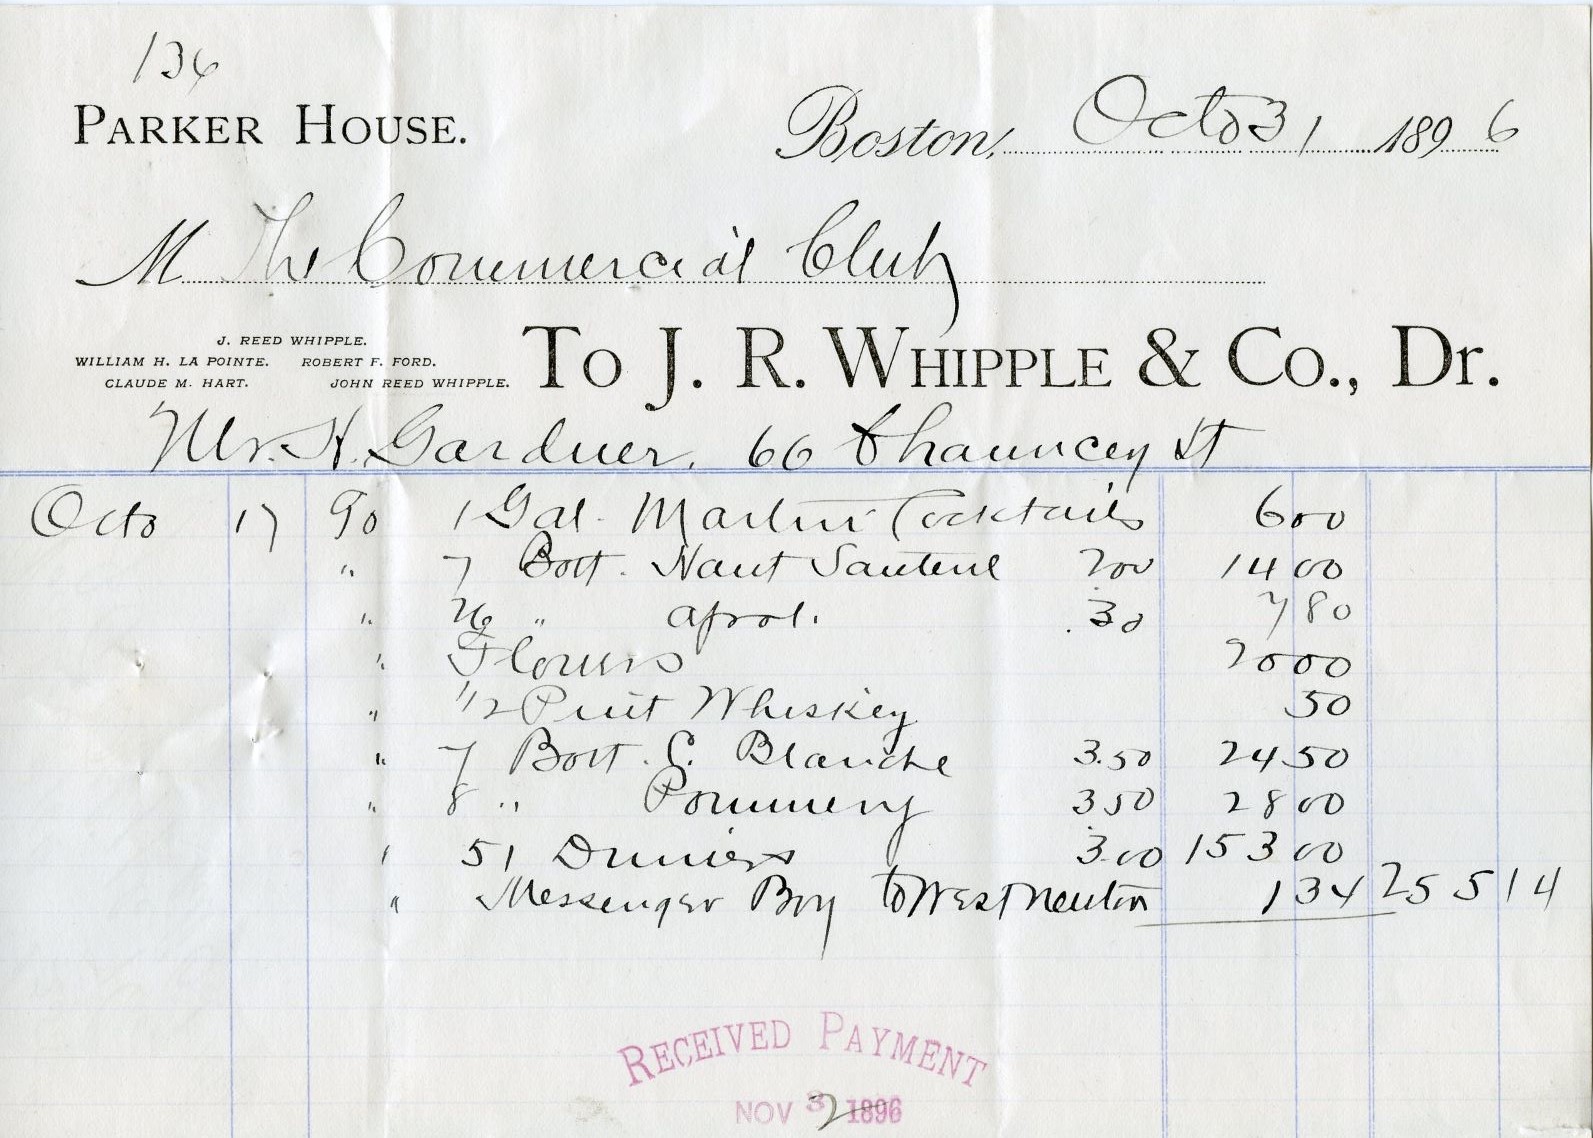 136
PARKER HOUSE.
Boston, Octo 31 1896
M The Commercial Club
J. REED WHIPPLE.
WILLIAM H. LA POINTE. ROBERT F. FORD.
CLAUDE M. HART. JOHN REED WHIPPLE.
To J. R. WHIPPLE & Co., Dr.
Mr. H. Gardner, 66 Chauncey St
Octo 17 To 1 Gal. Martini Cocktails 6 00
" 7 Bott. Haut Sauterne 2 00 14 00
" 26 " Apol. .30 7 80
" Flowers 20 00
" 1/2 Pint Whiskey 50
" 7 Bott. C. Blanche 3.50 24 50
" 8 " Pommery 3 50 28 00
" 51 Dinners 3.00 153 00
" Messenger Boy to West Newton 1 34 255 14
RECEIVED PAYMENT
NOV 2 1896